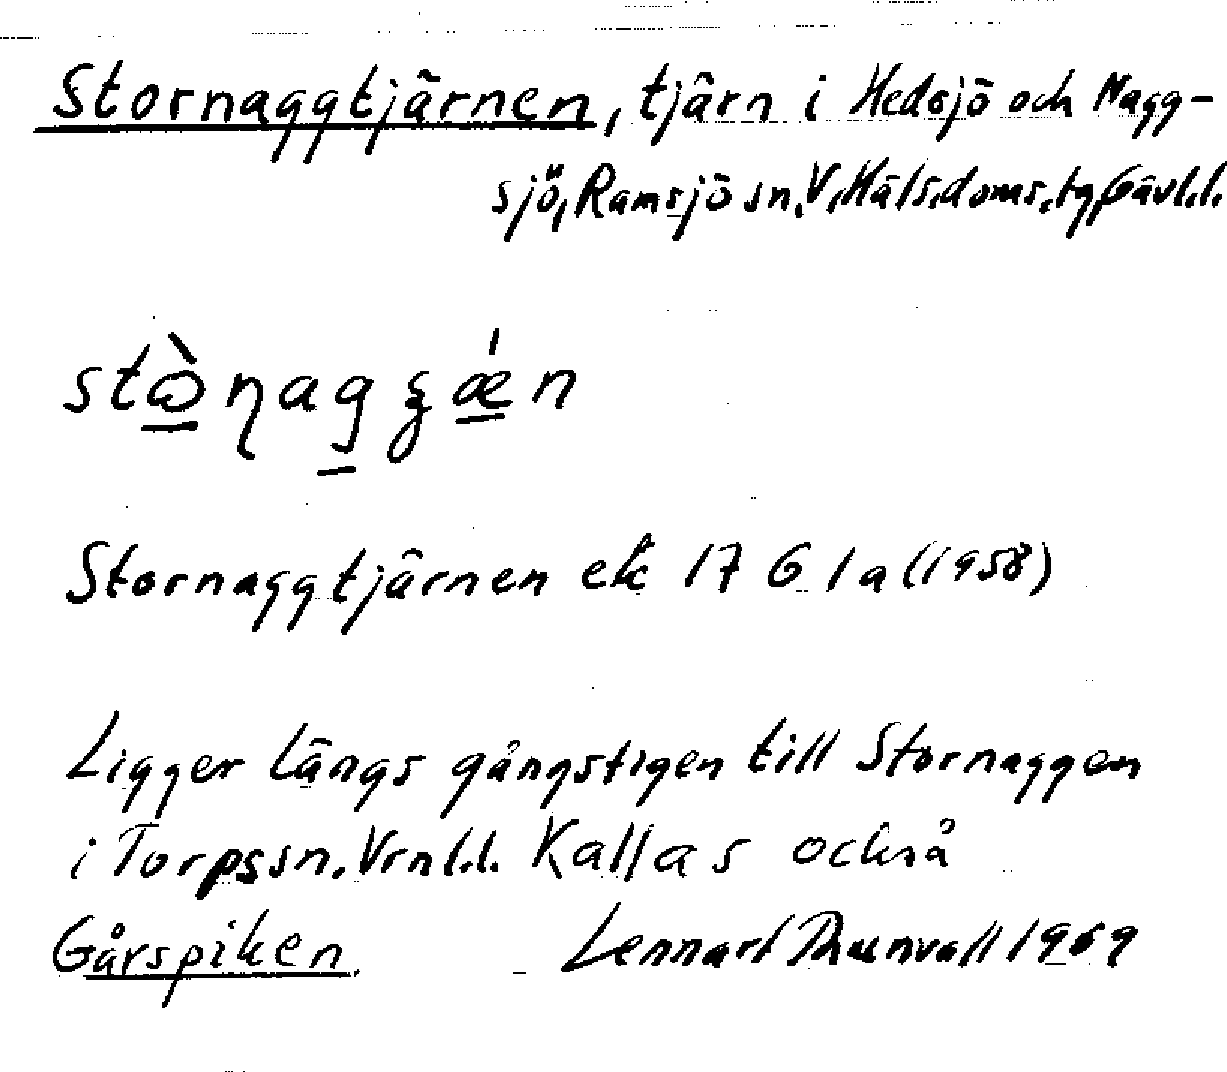 Stornaggtjärnen, tjärn i Hedsjö och Nagg-
sjö, Ramsjö sn, V. Hälsi. doms. tg Gävl. l.
stὼ̱ɳag̱ʒǽ̱n
Stornaggtjärnen ek 17 G 1a (1958)
Ligger längs gångstigen till Stornaggen
i Torps sn. Vrnl. l. Kallas också
Gårspiken. Lennart Thunvall 1969